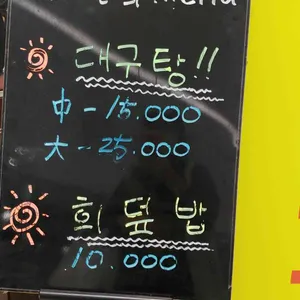 menu
대구탕!!
中 - 15.000
大 - 25.000
회덮밥
10.000